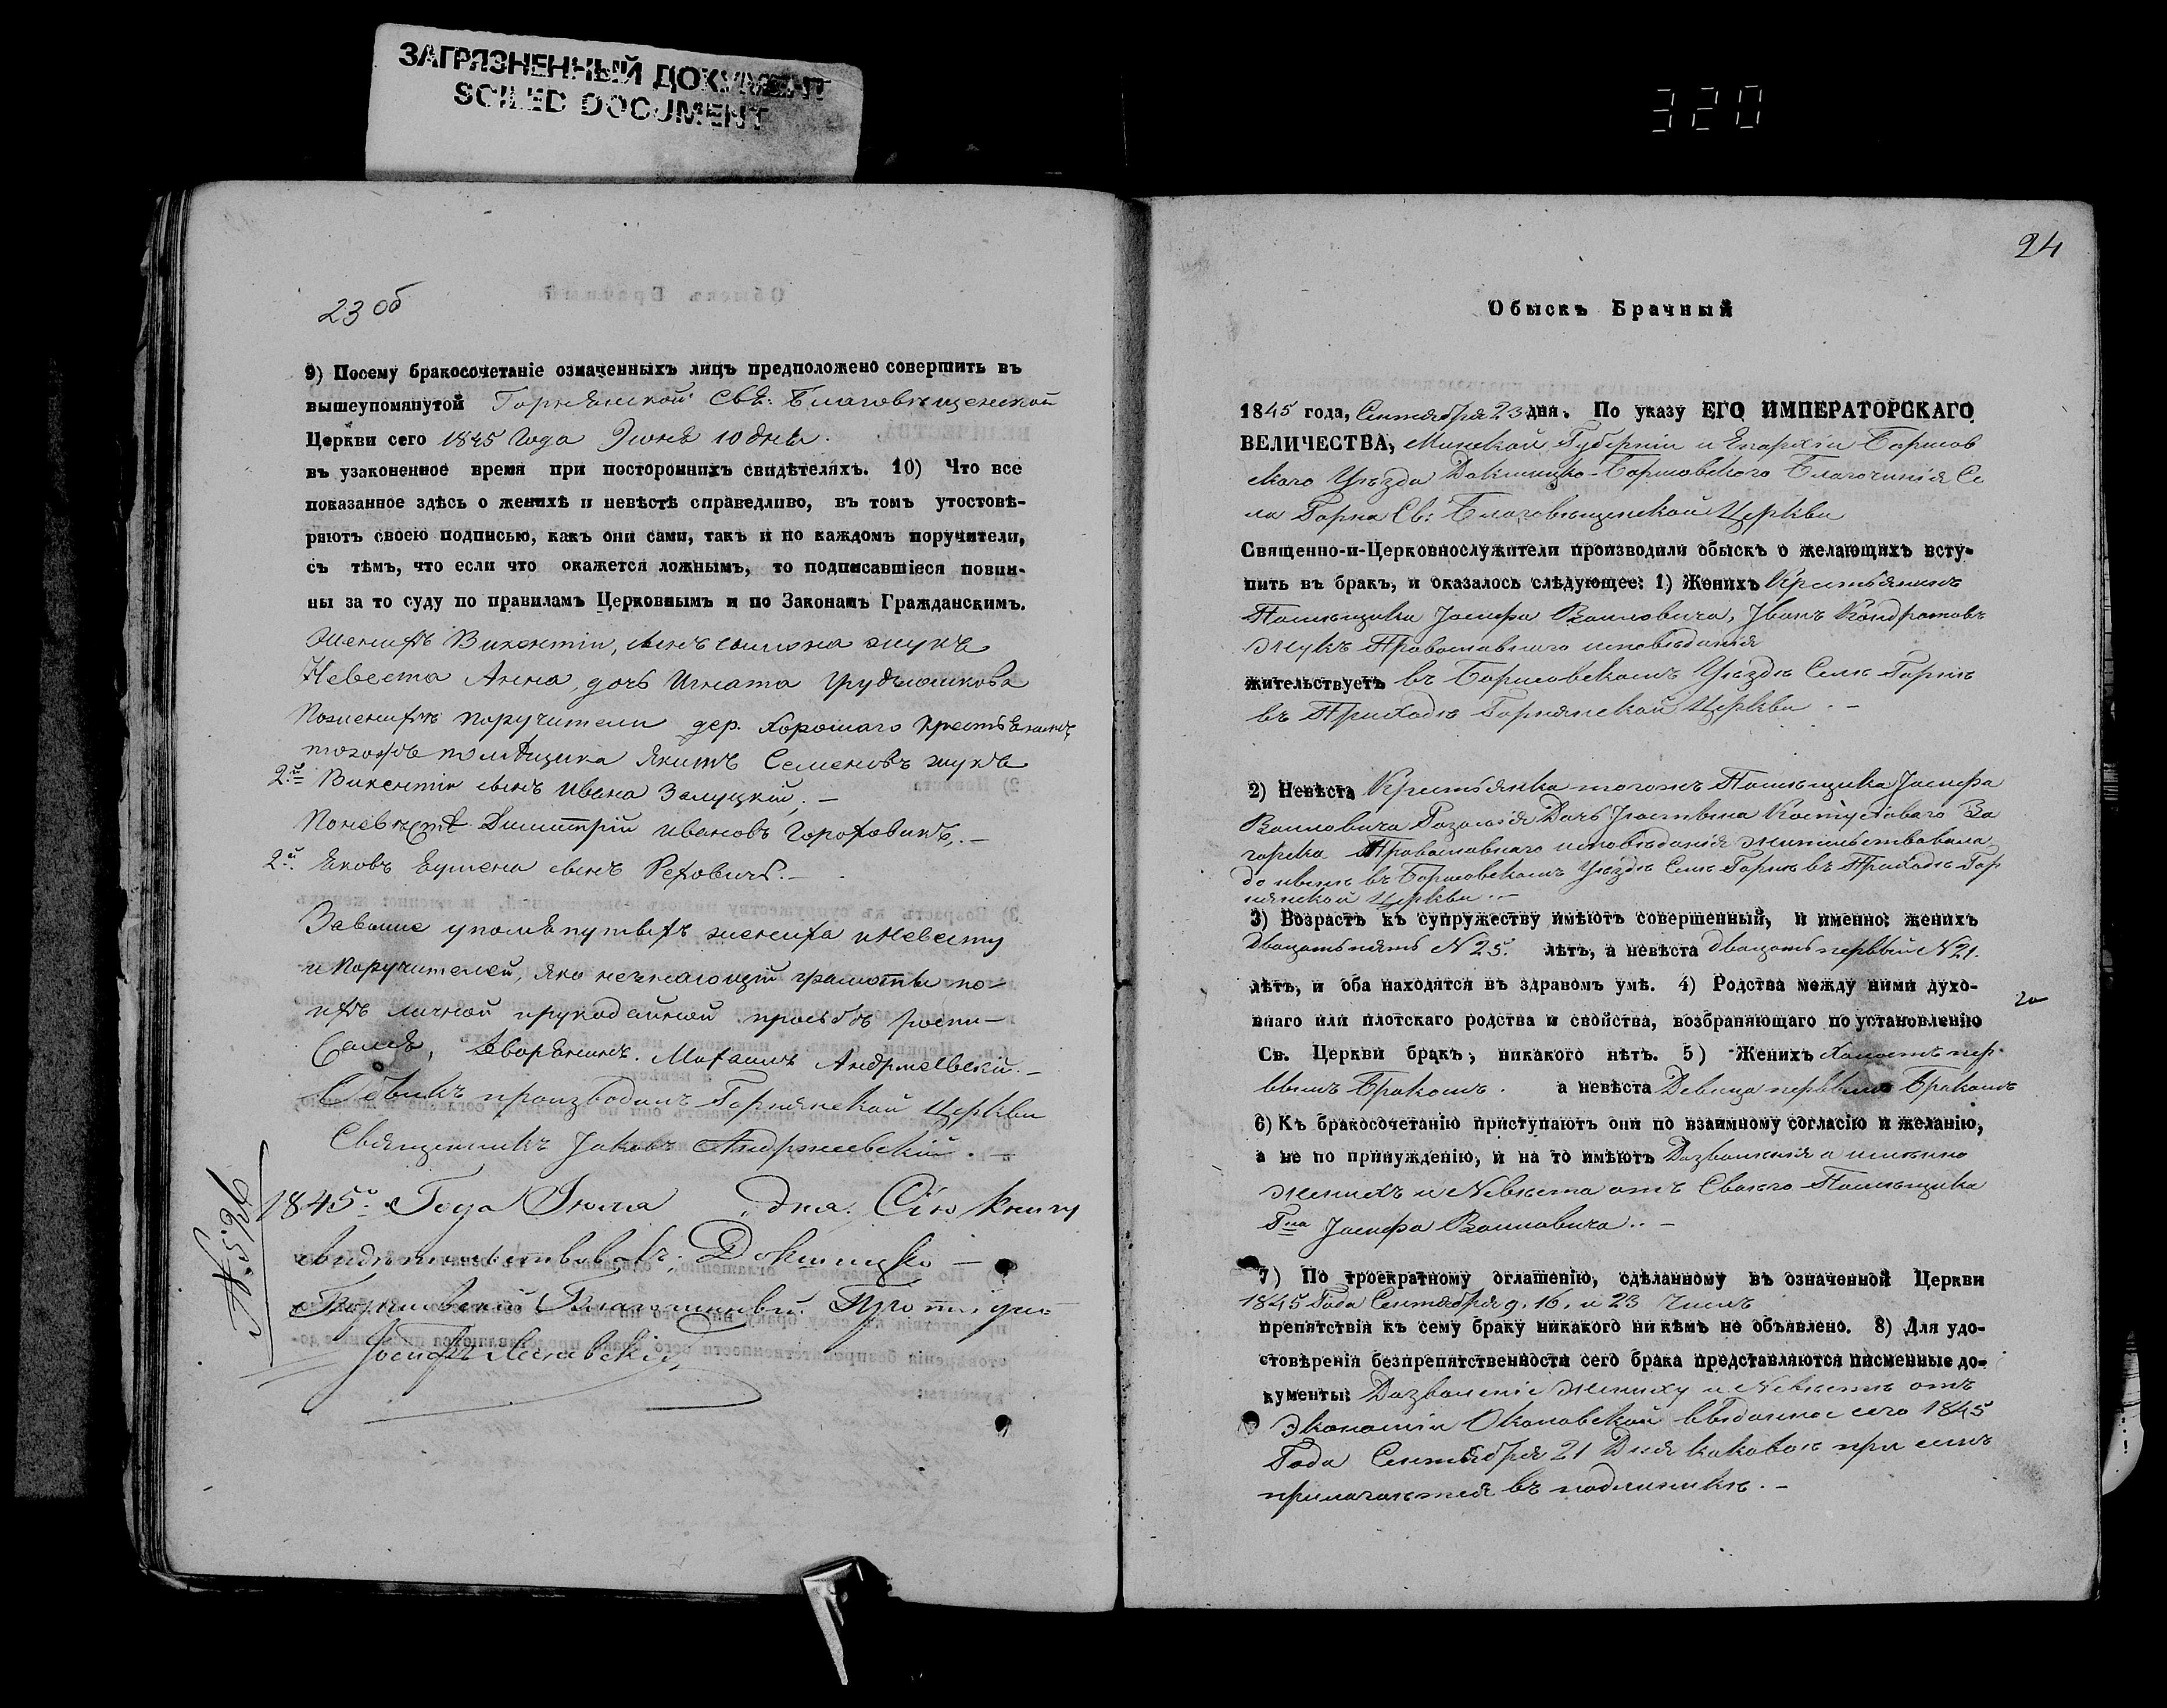 ЗАГРЯЗНЕННЫЙ ДОКУМЕНТ
SOILED DOCUMENT
320
23 об
9) Посему бракосочетаніе означенныхъ лицъ предположено совершить въ
вышеупомянутой Горнянской Свѣ: Благовѣщенской
Церкви сего 1845 года Іюнѣ 10 дня.
въ узаконенное время при постороннихъ свидѣтеляхъ. 10) Что все
показанное здѣсь о женихѣ и невѣстѣ справедливо, въ томъ утостовѣ-
ряютъ своею подписью, какъ они сами, такъ и по каждомъ поручители,
съ тѣмъ, что если что окажется ложнымъ, то подписавшіеся повин-
ны за то суду по правиламъ Церковнымъ и по Законамъ Гражданскимъ.
Женихъ Викентіи, сынъ жукъ
Невеста Анна, дочь Игната
Поженихѣ поручители дер. Хорошаго крестьянинъ
тогожъ помѣщика Якимъ Семеновъ жукъ
2.й Викентіи сынъ Ивана Залуцкій, -
Поневѣстѣ Димитрій Ивановъ Гороховикъ, -
2.й Яковъ сынъ Рехович. -
Завыше упомянутыхъ жениха иНевесту
иПоручителей, яко незнающій грамоты по
ихъ личной ирукодайной просьбѣ роспи-
Сался, Дворянинъ. Михаилъ Андржіевскій. -
Обыскъ производилъ Горнянской Церкви
Священникъ Іаковъ Андржеевскій. -
1845.о Года Іюля дня. Сію книгу
свидѣтельствовалъ Докшицко -
Борисовскій Благочинный
Іосифъ
24
Обыскъ Брачный
1845 года, Сентября 23 дня. По указу ЕГО ИМПЕРАТОРСКАГО
ВЕЛИЧЕСТВА, Минской Губерніи и Епархіи Борисов
скаго Уѣзда Докшицко-Борисовского Благочинія Се
ла Горна Св: Благовѣщенской Церкви
Священно-и-Церковнослужители производили обыскъ о желающихъ всту-
пить въ брак, и оказалось слѣдующее: 1) Женихъ Крестьянинъ
Помѣщика Іосифа Воиловича, Іванъ Кондратовъ
Жукъ Православнаго исповѣданія
жительствуетъ въ Борисовскомъ Уѣздѣ Селѣ Горнѣ
въ Приходѣ Горнянской Церкви. -
2) Невѣста Крестьянка тогожъ Помѣщика Іосифа
Воиловича Розалія Дочь За
горска Православнаго исповѣданія жительствовала
до нынѣ въ Борисовскомъ Уѣздѣ Селѣ Горнѣ въ Приходѣ Гор
нянской Церкви. -
3) Возрастъ къ супружеству имѣютъ совершенный, и именно: женихъ
двацать пять N 25. лѣтъ, а невѣста двацать первый N 21.
лѣтъ, и оба находятся въ здравомъ умѣ. 4) Родства между ними духо-
внаго или плотскаго родства и свойства, возбраняющаго по установленію
Св. Церкви бракъ, никакого нѣтъ. 5) Женихъ Холостъ пер-
вымъ Бракомъ. а невѣста Девица первымъ Бракомъ
6) Къ бракосочетанію приступаютъ они по взаимному согласію и желанію,
а не по принужденію, и на то имѣютъ Дозволенія а именно
женихъ и Невѣста отъ Своего Помѣщика
Гна Іосифа Воиловича.. -
7) По троекратному оглашенію, сдѣланному въ означенной Церкви
1845 Года Сентября 9. 16. и 23 Числъ
препятствія къ сему браку никакого ни кѣмъ не объявлено. 8) Для удо-
стовѣренія безпрепятственности сего брака представляются писменные до-
кументы: Дозволеніе жениху и Невѣстѣ отъ
Экономіи Околовской выданное сего 1845
Года Сентября 21 Дня каковое при семъ
прилагается въ подлиникѣ. -